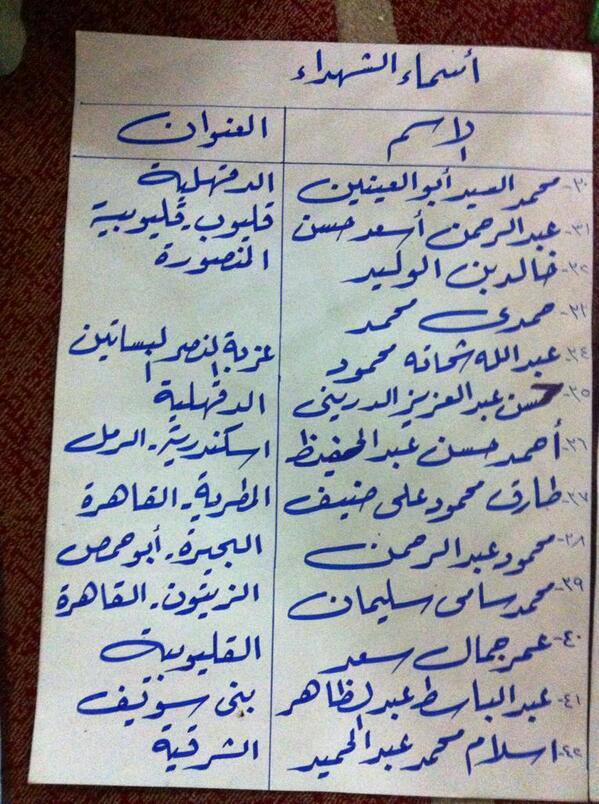 أسماء الشهداء
الاسم العنوان
٣٠- محمد السيد أبو العينين الدقهلية
٣١- عبد الرحمن أسعد حسن قليوب - قليوبية
٣٢- خالد بن الوليد المنصورة
٣٣- حمدى محمد
٣٤- عبد الله شحاته محمود عزبة النصر البساتين
٣٥- حسن عبد العزيز الدرينى الدقهلية
٣٦- أحمد حسن عبد الحفيظ اسكندرية - الرمل
٣٧- طارق محمود على حنيف المطرية - القاهرة
٣٨- محمود عبد الرحمن البحيرة - أبو حمص
٣٩- محمد سامى سليمان الزيتون - القاهرة
٤٠- عمر جمال سعد القليوبية
٤١- عبد الباسط عبد الظاهر بنى سويف
٤٢- اسلام محمد عبد الحميد الشرقية